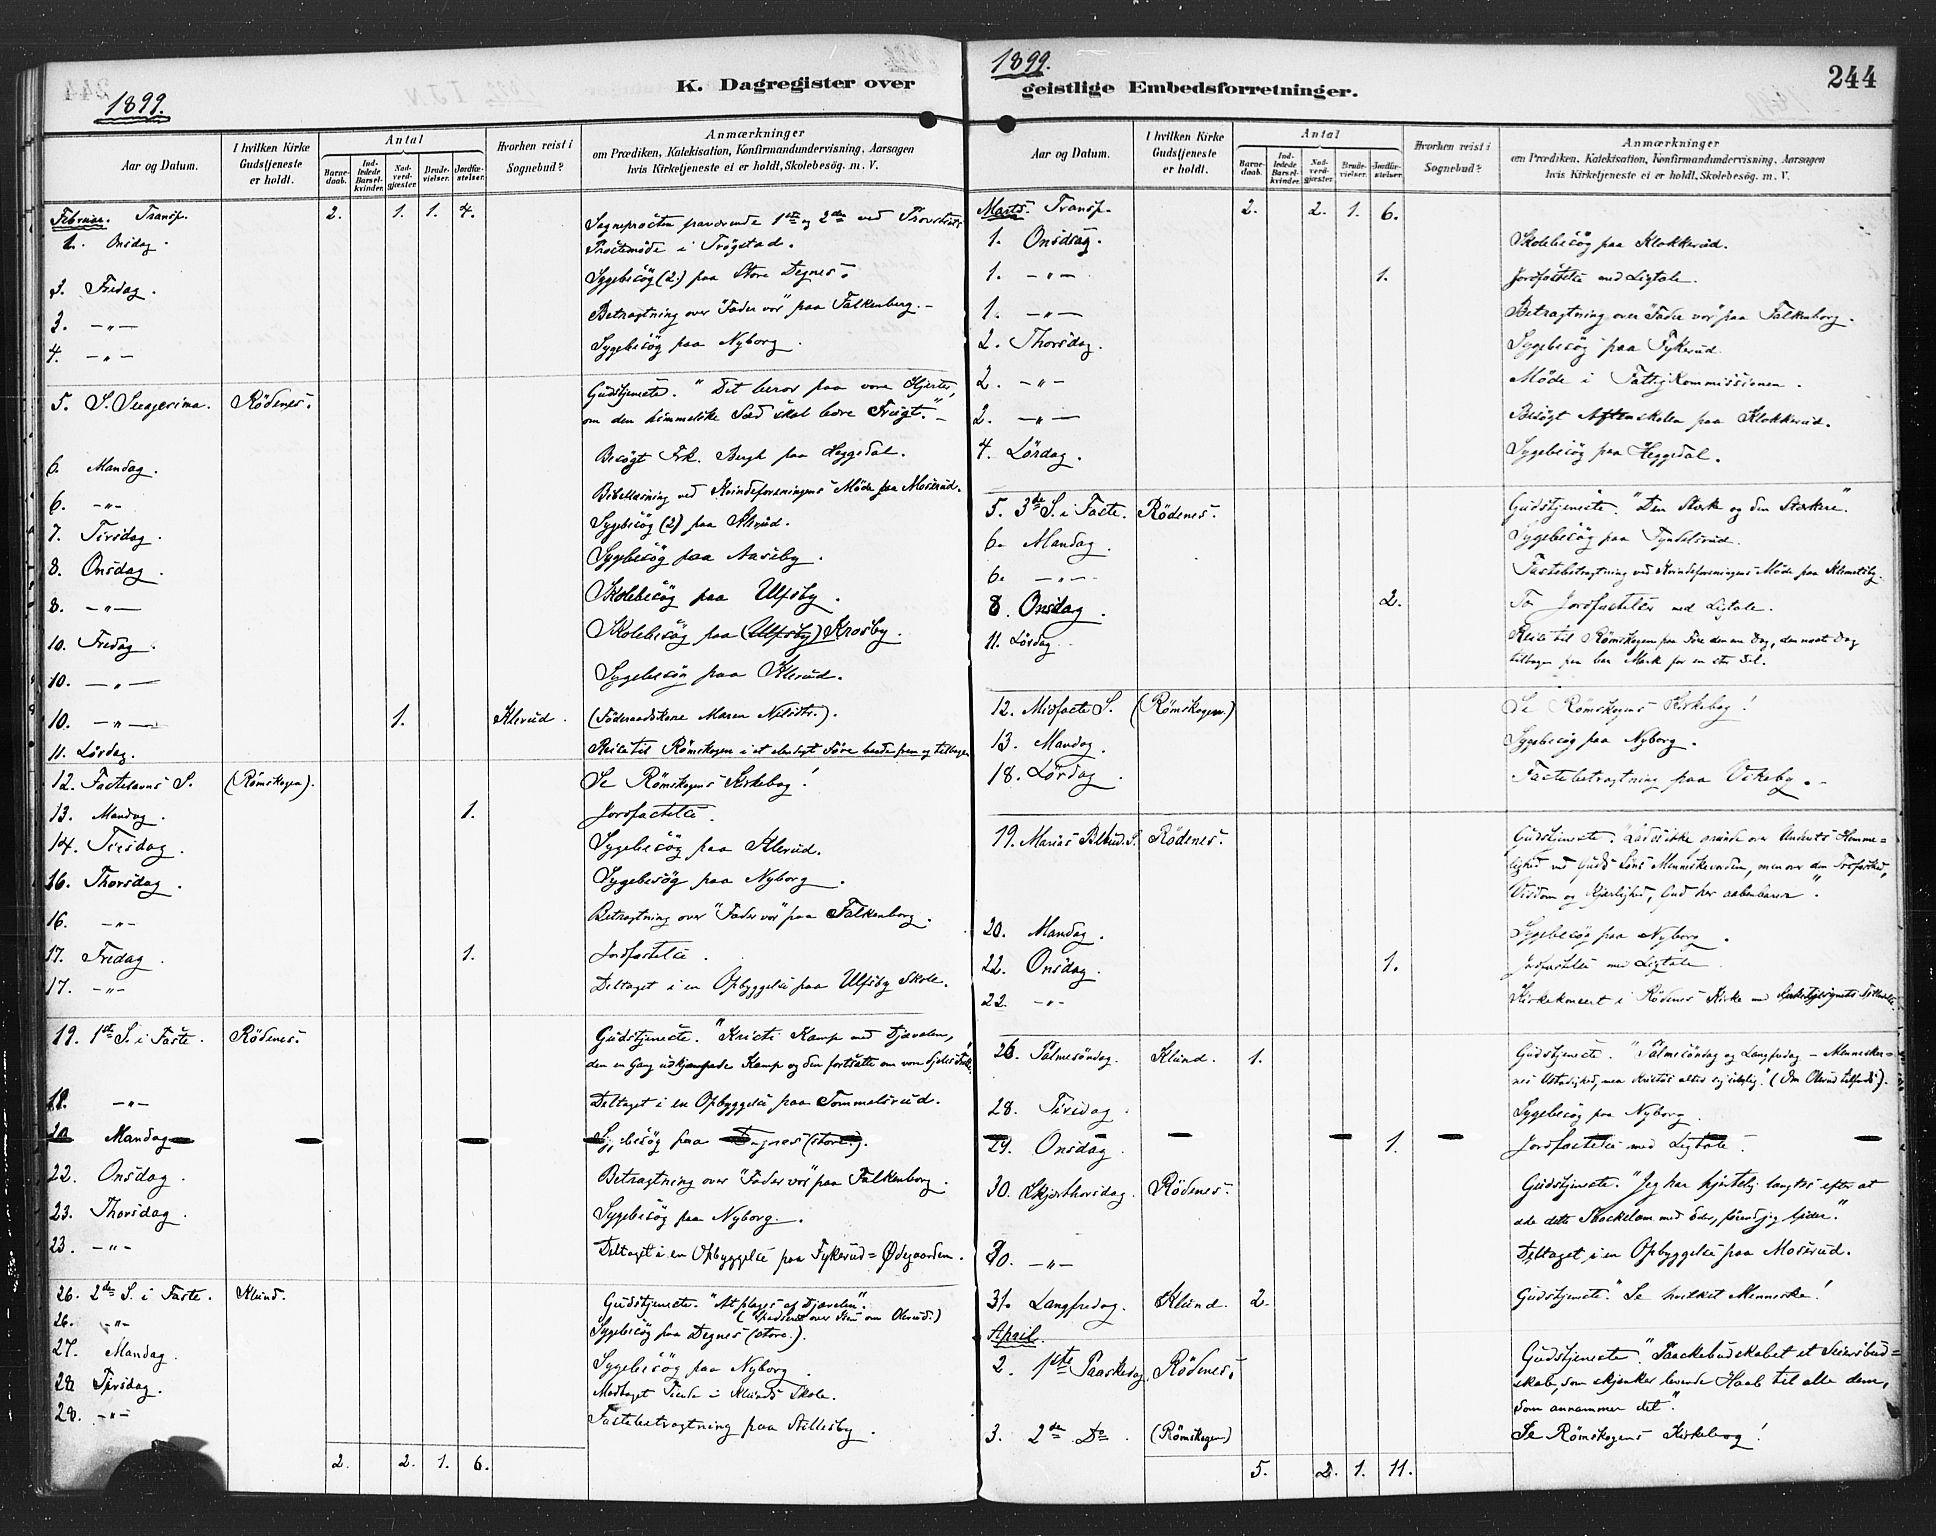 1899.
K. Dagregister over
Aar og Datum.
I hvilken Kirke Gudstjeneste er holdt.
Antal
Barnedaab.
Indledede Barselkvinder.
Nadverdgjæster.
Brudevielser.
Jordfæstelser.
Hvorhen reist i Sognebud?
Anmærkninger
om Prædiken, Katekisation, Konfirmandundervisning, Aarsagen
hvis Kirketjeneste ei er holdt, Skolebesög. m. V.
Februar. Transp. 2. 1. 1. 4.
1. Onsdag. Sognepræsten fraværende 1ste og 2den ved Provstiets
Præstemøde i Trögstad.
3. Fredag. Sygebesög (2) paa Store Degnes.
3. -"- Betragtning over "Fader vor" paa Falkenberg.
4. -"- Sygebesög paa Nyborg.
5. S. Sexagesima. Rödenes. Gudstjeneste. "Det beror paa vore Hjerter,
om den himmelske Sæd skal bære Frugt."
6. Mandag. Besögt Frk. Bergh paa Heggedal.
6. -"- Bibellæsning ved Kvindeforeningens Möde paa Moserud.
7. Tirsdag. Sygebesög (2) paa Klerud.
8. Onsdag. Sygebesög paa Aaseby.
8. -"- Skolebesög paa Ulfsby.
10. Fredag. Skolebesög paa (Ulfsby) Krosby.
10. -"- Sygebesög paa Klerud.
10. -"- 1. Klerud. (Föderaadskone Maren Nilsdtr.).
11. Lördag. Reise til Römskogen i et elendigt Före baade frem og tilbage.
12. Fastelavns S. (Römskogen). Se Römskogens Kirkebog!
13. Mandag. 1. Jordfæstelse.
14. Tirsdag. Sygebesög paa Klerud.
16. Thorsdag. Sygebesög paa Nyborg.
16. -"- Betragtning over "Fader vor" paa Falkenborg.
17. Fredag. 1. Jordfæstelse.
17. -"- Deltaget i en Opbyggelse paa Ulfsby Skole.
19. 1ste S. i Faste. Rödenes. Gudstjeneste. "Kristi Kamp med Djævelen,
den en Gang udkjæmpede Kamp og den fortsatte om vore Sjæles
19. -"- Deltaget i en Opbyggelse paa Tommelsrud.
20. Mandag Sygebesög paa Degnes (store).
22. Onsdag. Betragtning over "Fader vor" paa Falkenborg.
23. Thorsdag. Sygebesög paa Nyborg.
23. -"- Deltaget i en Opbyggelse paa Fykerud=Ødegaarden.
26. 2den S. i Faste. Klund. Gudstjeneste. "At plages af Djævelen."
26. -"-
27. Mandag. Sygebesög paa Degnes (store.).
28. Tirsdag. Sygebesög paa Nyborg.
Modtaget Tiende i Klunds Skole.
28. -"- Fastebetragtning paa Stillesby.
2. 2. 1. 6.
1899.
geistlige Embedsforretninger.
244
Aar og Datum.
I hvilken Kirke Gudstjeneste er holdt.
Antal
Barnedaab.
Indledede Barselkvinder.
Nadverdgjæster.
Brudevielser.
Jordfæstelser.
Hvorhen reist i Sognebud?
Anmærkninger
om Prædiken, Katekisation, Konfirmandundervisning, Aarsagen
hvis Kirketjeneste ei er holdt, Skolebesög. m. V.
Marts. Transp. 2. 2. 1. 6.
1. Onsdag. Skolebesög paa Klokkerud.
1. -"- 1. Jordfæstelse med Ligtale.
1. -"- Betragtning over "Fader vor" paa Falkenborg.
2. Thorsdag. Sygebesög paa Fykerud.
2. -"- Möde i Fattigkommissionen.
2. -"- Besögt Aftenskolen paa Klokkerud.
4. Lördag. Sygebesög paa Heggedal.
5. 3de S. i Faste. Rödenes. Gudstjeneste. "Den Stærke og den Stærkere."
6. Mandag. Sygebesög paa Tyndelsrud.
6. -"- Fastebetragtning ved Kvindeforeningens Möde paa Klemetsby.
8. Onsdag. 2. To Jordfæstelser med Ligtale.
11. Lördag. Reise til Römskogen paa Före den ene Dag, den næste Dag
tilbage paa bar Mark for en stor Del.
12. Midfaste S. (Römskogen.) Se Römskogens Kirkebog!
13. Mandag. Sygebesög paa Nyborg.
18. Lördag. Fastebetragtning paa Vikeby.
19. Mariæ Bebud. S. Rödenes. Gudstjeneste. "Lad os ikke grunde over Underets Hemme-
lighed ved Guds Söns Menneskevorden, men over den Trofasthed,
Visdom og Kjærlighed, Gud her aabenbarer."
20. Mandag. Sygebesög paa Nyborg.
22. Onsdag. 1. Jordfæstelse med Ligtale.
22. -"- Kirkekoncert i Rödenes Kirke ved
26. Palmesöndag. Klund. 1. Gudstjeneste. "Palmesöndag og Langfredag - Mennesker-
nes Ustadighed, men Kristus altid
28. Tirsdag. Sygebesög paa Nyborg.
29. Onsdag. 1. Jordfæstelse med Ligtale.
30. Skjærthorsdag. Rödenes. Gudstjeneste. "Jeg har hjertelig længtes efter at
æde dette Paaskelam med Eder, förend jeg lider."
30. -"- Deltaget i en Opbyggelse paa Moserud.
31. Langfredag. Klund. 2. Gudstjeneste. "Se hvilket Menneske!
April.
2. 1ste Paaskedag. Rödenes. Gudstjeneste". Paaskebudskabet et Seiersbud=
skab, som skjænker levende Haab til alle dem,
som annammer det."
3. 2den Do. (Römskogen) Se Römskogens Kirkebog!
5. 2. 1. 11.